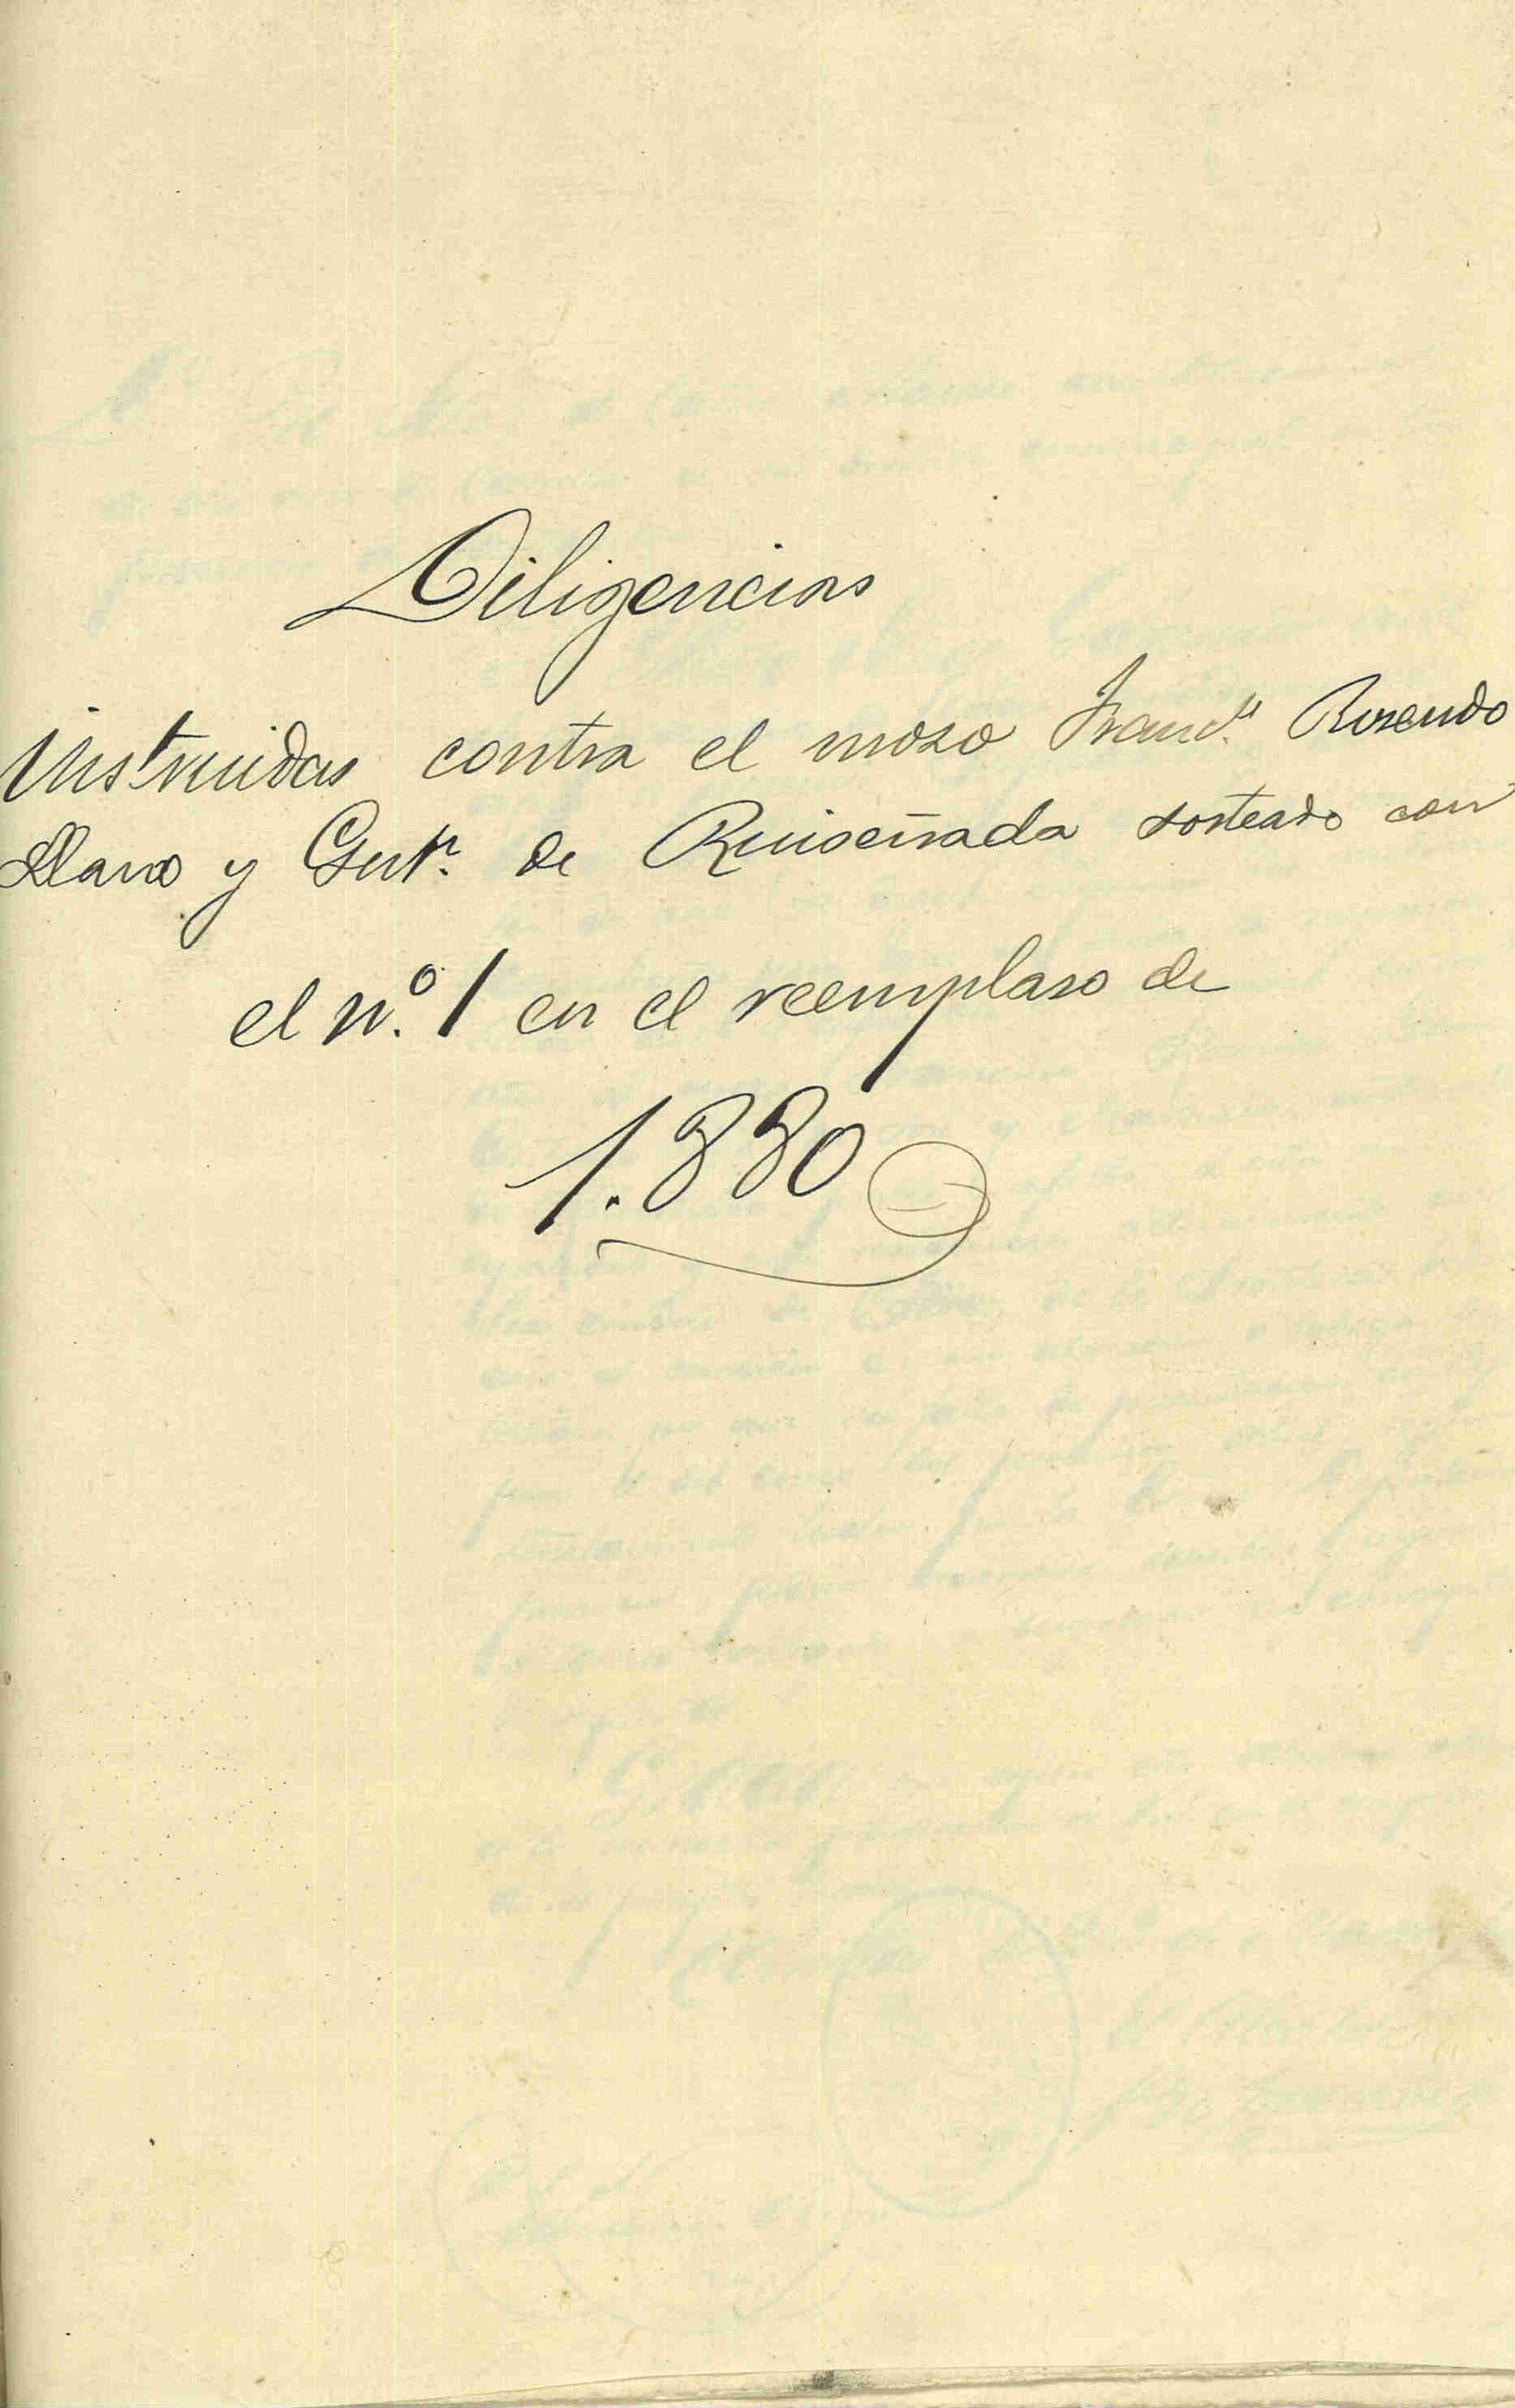 Diligencias
Instruidas contra el moso Franc.º Rosendo
Llano y Gut.z de Ruiseñada sorteado con
el n.º 1 en el reemplaso de
1.880